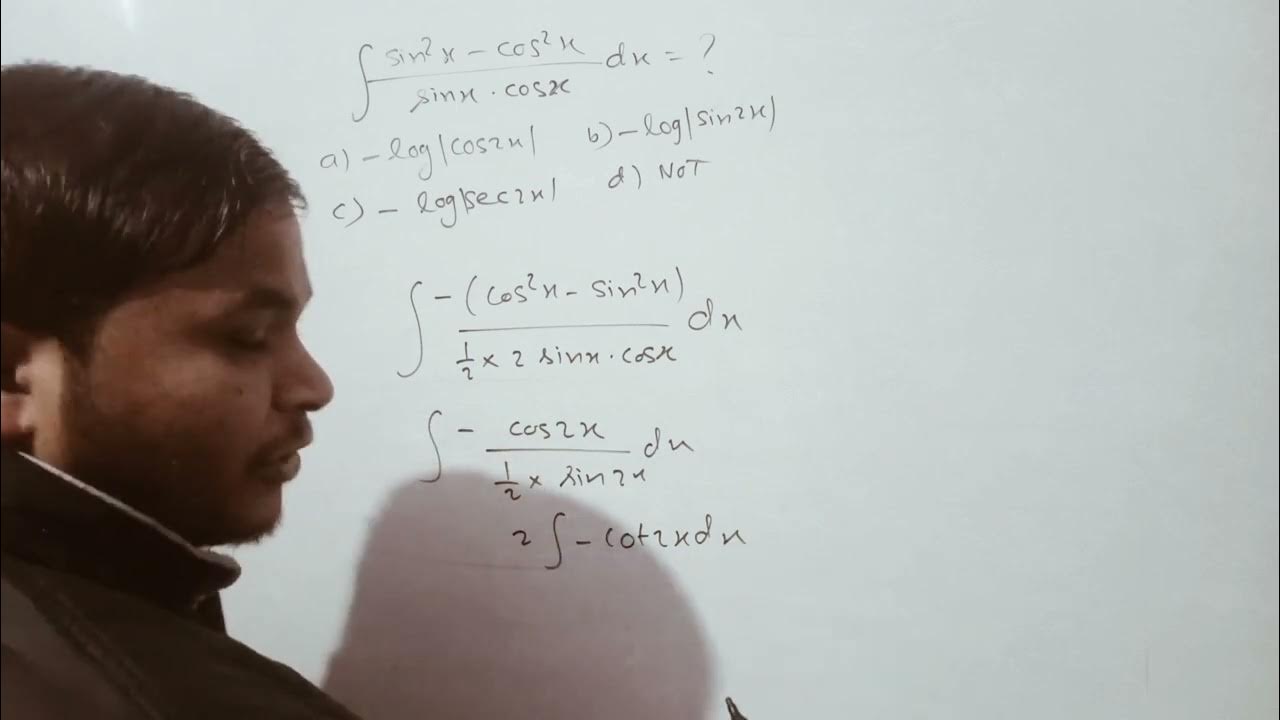 ∫ (sin²x - cos²x)/(sinx · cosx) dx = ?
a) -log|cos2x|  b) -log|sin2x|
c) - log|sec2x|  d) NOT
∫ -(cos²x - sin²x)/(1/2 × 2 sinx · cosx) dx
∫ - cos2x/(1/2 × sin2x) dx
2 ∫ - cot2x dx